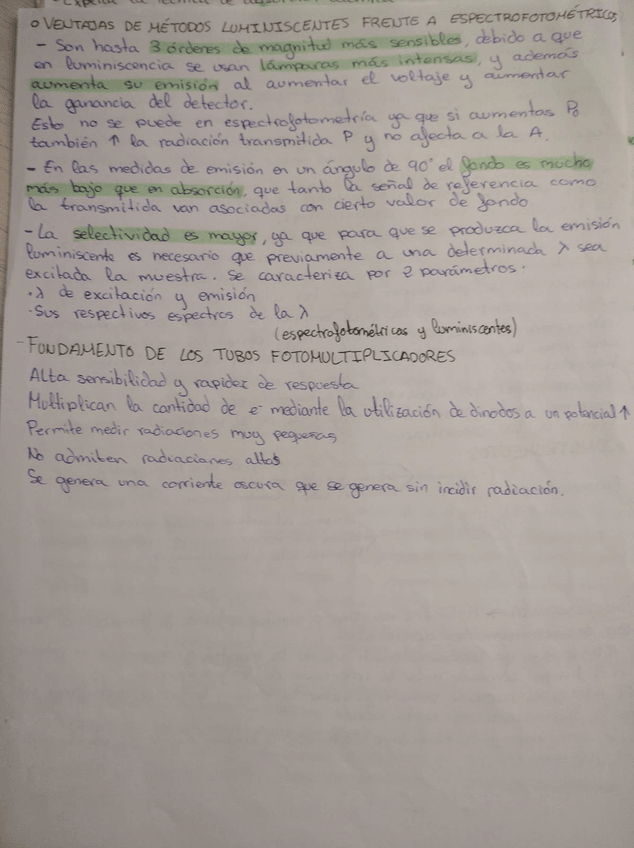 o VENTAJAS DE MÉTODOS LUMINISCENTES FRENTE A ESPECTROFOTOMÉTRICOS
- Son hasta 3 órdenes de magnitud más sensibles, debido a que
en luminiscencia se usan lámparas más intensas, y además
aumenta su emisión al aumentar el voltaje y aumentar
la ganancia del detector.
Esto no se puede en espectrofotometría ya que si aumentas P₀
también ↑ la radiación transmitida P y no afecta a la A.
- En las medidas de emisión en un ángulo de 90° el fondo es mucho
más bajo que en absorción, que tanto la señal de referencia como
la transmitida van asociadas con cierto valor de fondo
- La selectividad es mayor, ya que para que se produzca la emisión
luminiscente es necesario que previamente a una determinada λ sea
excitada la muestra. Se caracteriza por 2 parámetros.
· λ de excitación y emisión
· Sus respectivos espectros de la λ
(espectrofotométricas y luminiscentes)
- FUNDAMENTO DE LOS TUBOS FOTOMULTIPLICADORES
Alta sensibilidad y rapidez de respuesta
Multiplican la cantidad de e⁻ mediante la utilización de dinodos a un potencial ↑
Permite medir radiaciones muy pequeñas
No admiten radiaciones altas
Se genera una corriente oscura que se genera sin incidir radiación.